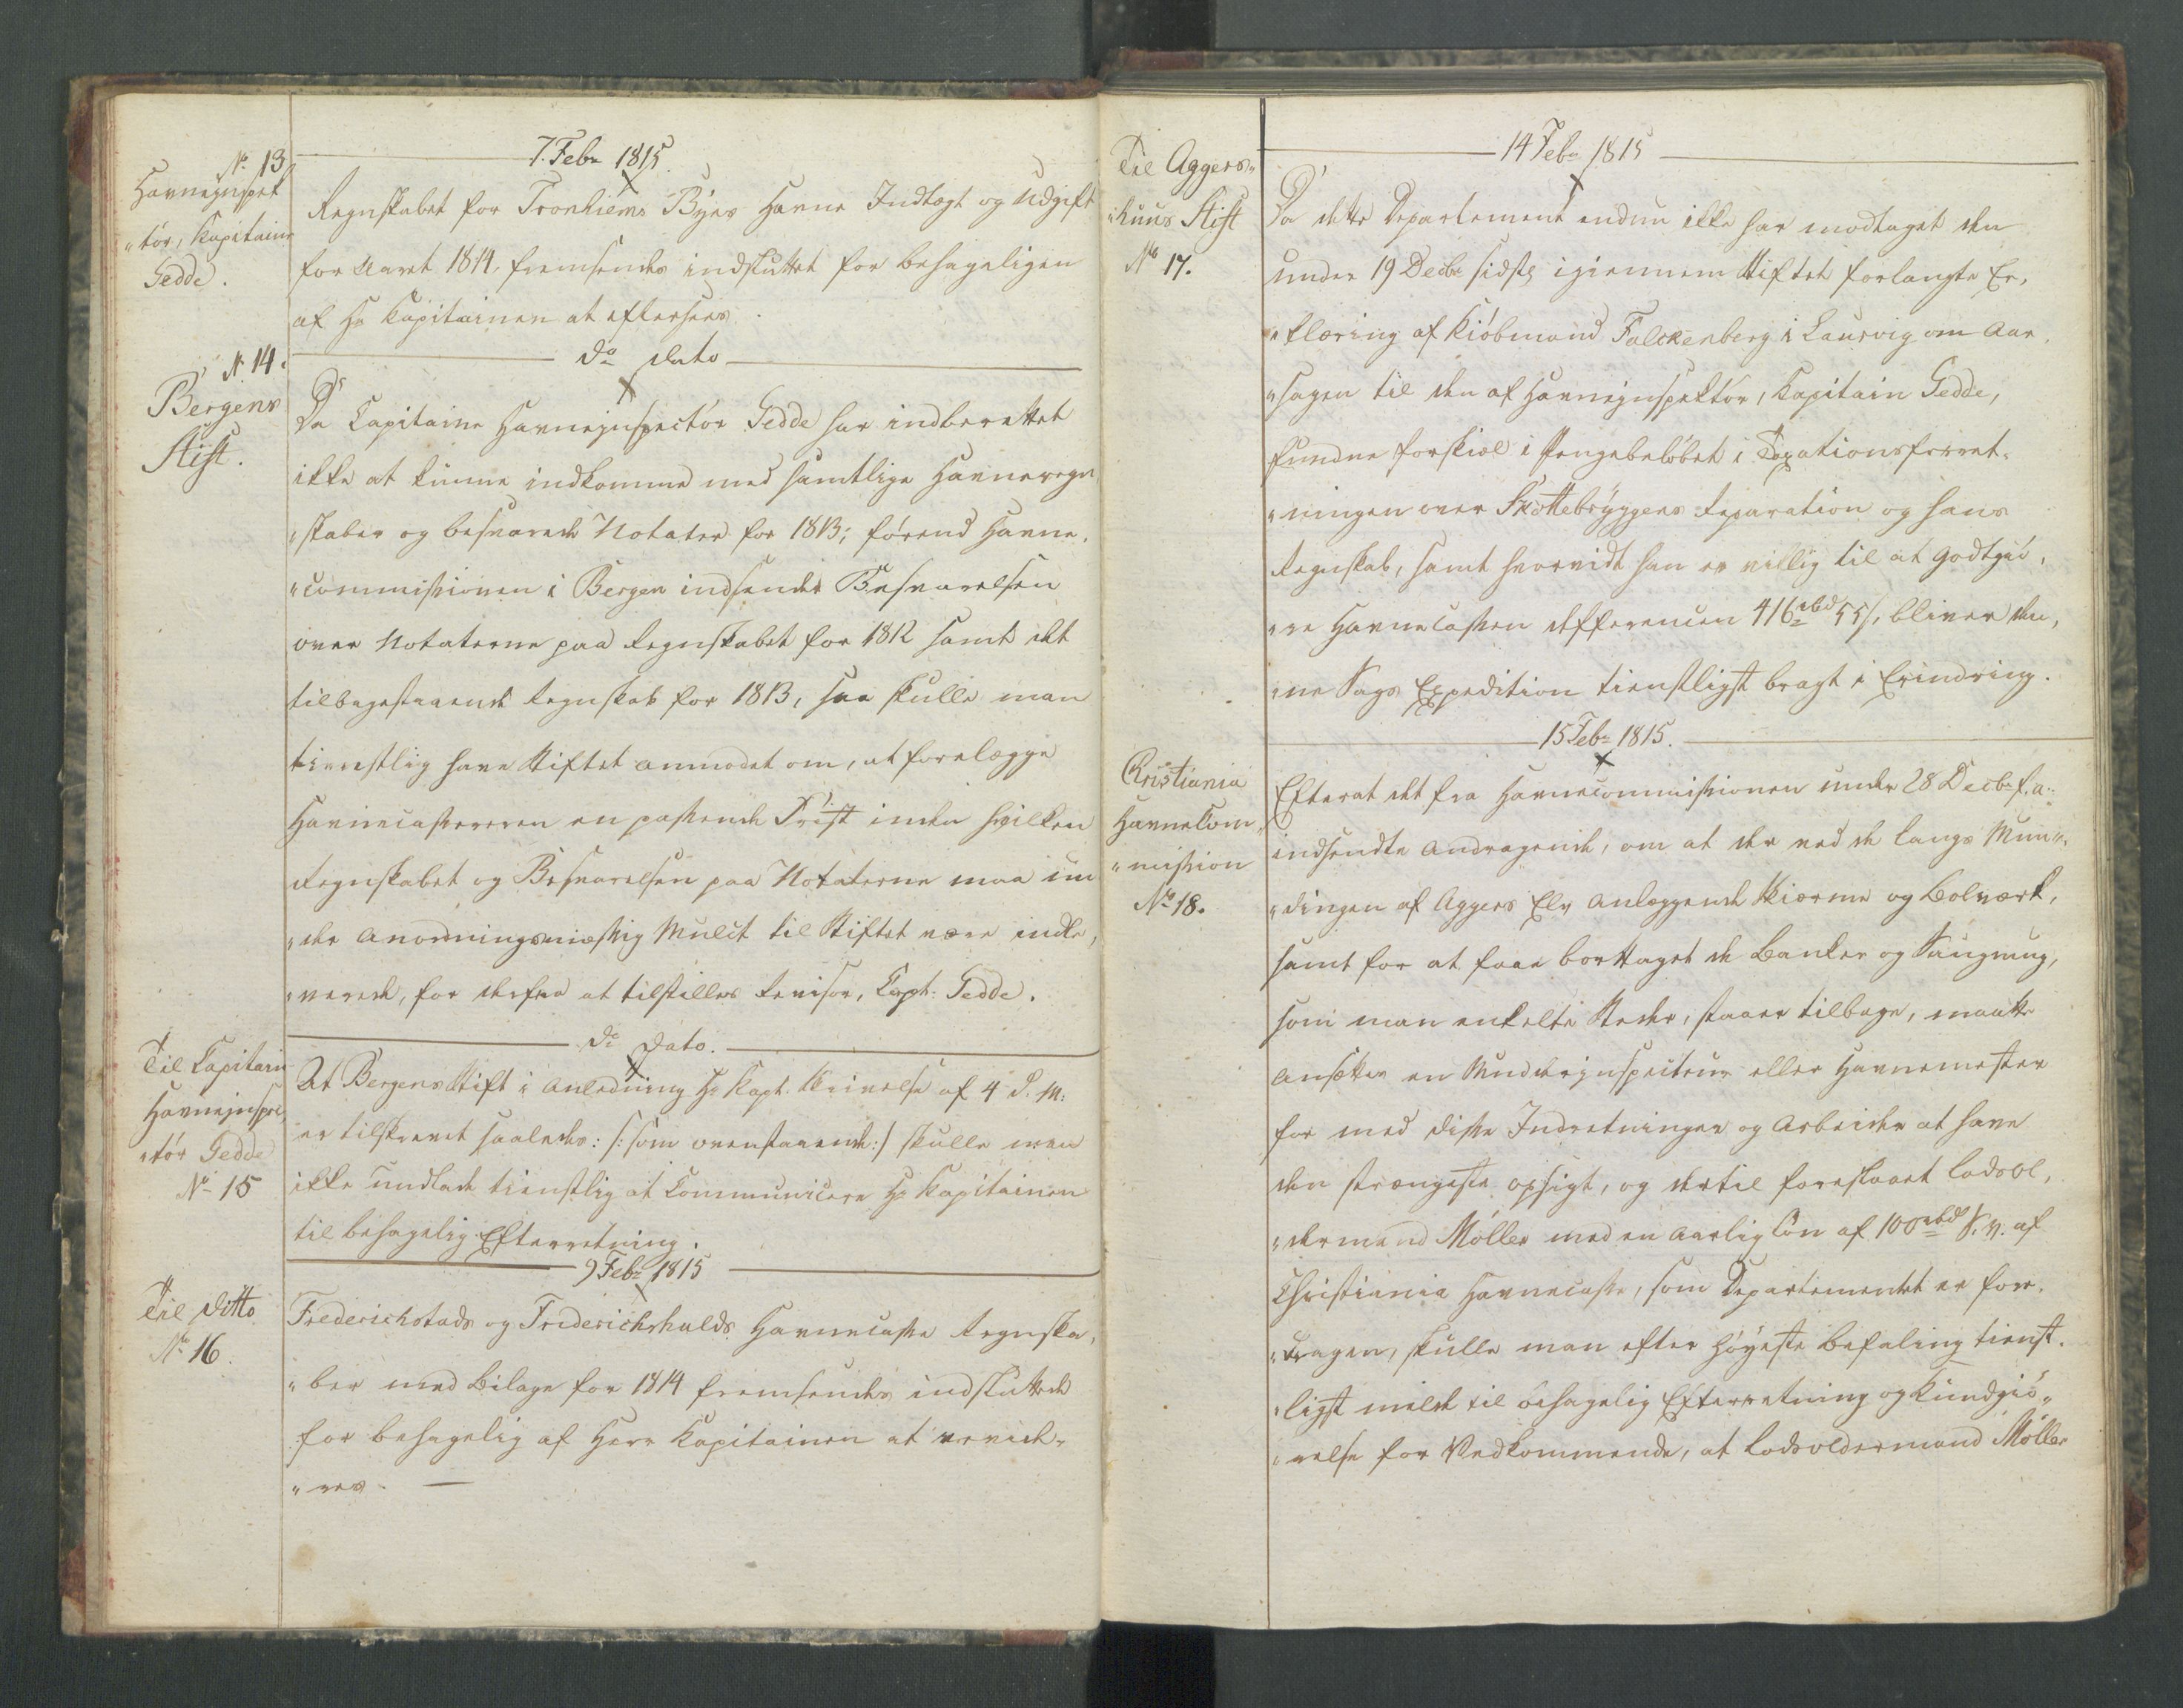 7. Febr 1815.
No 13
Havneinspek
"tör, Kapitain
Gedde.
Regnskabet for Tronhiems Byes Havne Indtægt og Udgift
for Aaret 1814, fremsendes indsluttet for behageligen
af Hr Kapitainen at eftersees.
do Dato
N 14.
Bergens
Stift.
Da Capitaine Havneinspectör Gedde har indberettet
ikke at kunne indkomme med samtlige Havneregn
"skaber og besvarede Notater for 1813; førend Havne,
"commissionen i Bergen indsender Besvarelsen
over Notaterne paa Regnskabet for 1812 samt det
tilbagestaaende Regnskab for 1813, saa skulle man
tienstlig have Stiftet anmodet om, at forelægge
Havnecassereren en passende Frist inden hvilken
Regnskabet og Besvarelsen paa Notaterne maa un
"der anordningsmæssig Mulct til Stiftet være indle,
"verede, for derfra at tilstilles Revisor, Capt: Gedde.
do Dato.
Til Capitain
Havneinspec
"tör Gedde
No 15
At Bergens Stift i Anledning Hr Kapt. Skrivelse af 4 d. M:
er tilskrevet saaledes: /: som ovenstaaende :/ skulle man
ikke undlade tienstlig at Communicere Hr Kapitainen
til behagelig Efterretning.
9 Febr 1815
Til Ditto
No 16.
Frederichstads og Friderichshalds Havnecasse Regnska,
"ber med Bilage for 1814 fremsendes indsluttede
for behagelig af Herr Kapitainen at revide-
"res. —
14 Febr 1815
Til Aggers"
"huus Stift
No 17.
Da dette Departement endnu ikke har modtaget den
under 19 Decbr sidstl igiennem Stiftet forlangte Er,
"klæring af Kiøbmand Falckenberg i Laurvig om Aar,
"sagen til den af Havneinspektör, Kapitain Gedde,
fundne forskiæl i Pengebeløbet i Taxationsforret-
"ningen over Skottebryggens Reparation og hans
Regnskab, samt hvorvidt han er villig til at godtgiö,
"re Havnecassen differencen 416 rbd 55 s, bliver den,
"ne Sags Expedition tienstligst bragt i Erindring.
15 Febr 1815.
Christiania
Havnecom"
"mission
No 18.
Efterat det fra Havnecommissionen under 28 Decbr f. a.
indsendte Andragende, om at der ved de langs Mun",
"dingen af Aggers Elv anlæggende Skiærme og Bolværk,
samt for at faae borttaget de Banker og Saugmug,
som man enkelte Steder, staaer tilbage, maatte
ansættes en Mudderinspecteur eller Havnemester
for med disse Indretninger og Arbeider at have
den strængeste opsigt, og dertil foreslaaet Lodsol,
"dermand Möller med en aarlig Løn af 100 rbd S. V. af
Christiania Havnecasse, som Departementet er fore-
"dragen, skulle man efter høyeste Befaling tienst-
"ligst melde til behagelig Efterretning og Kundgiö"
"relse for Vedkommende, at Lodsoldermand Möller